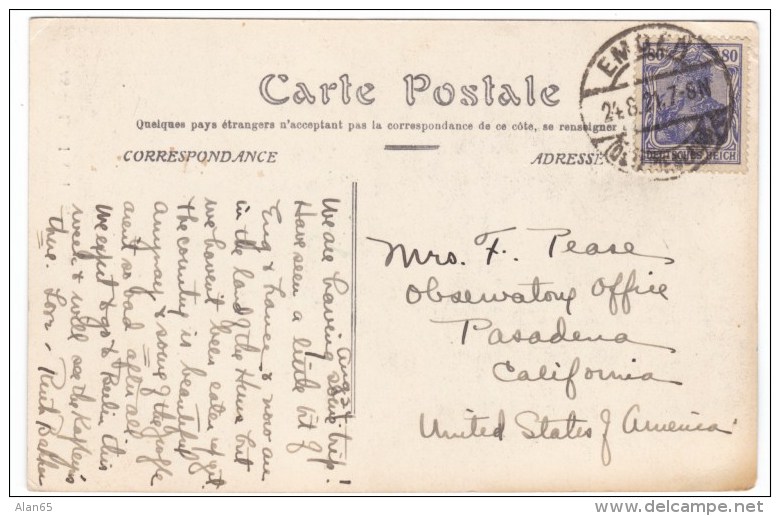 Carte Postale
Quelques pays étrangers n'acceptant pas la correspondance de ce côté, se renseigner
CORRESPONDANCE
ADRESSE
EMDEN
24.8.21.7-8 N
80 80
DEUTSCHES REICH
Aug 24.
We are having some trip!
Have seen a little bit of
Eng & France & now are
in the land of the Huns but
we haven't been eaten up yet.
The country is beautiful
anyway & some of the people
arent so bad after all.
We expect to go to Berlin this
week & will see the
there. Love - Ruth
Mrs. F. Pease
Observatory Office
Pasadena
California
United States of America
Alan65
delcampe.net